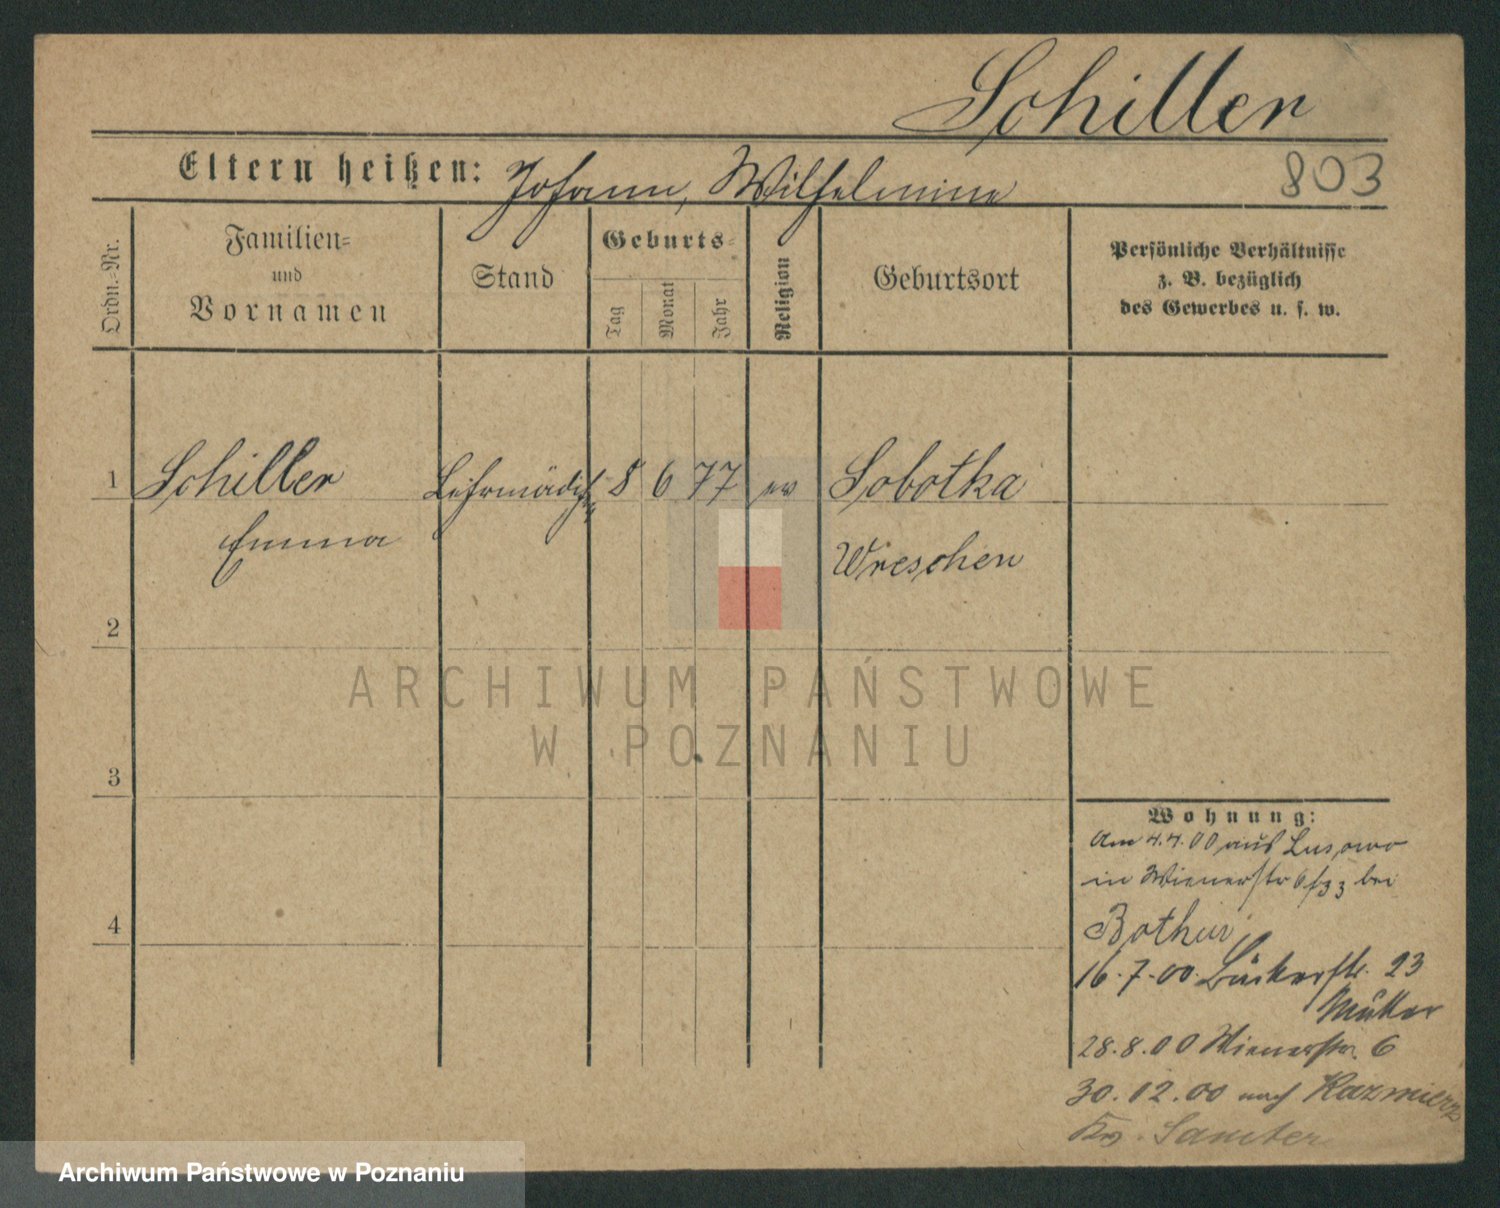 Schiller
Eltern heißen: Johann, Wilhelmine
803
Ordn.-Nr.
Familien-
und
Vornamen
Stand
Geburts-
Tag
Monat
Jahr
Religion
Geburtsort
Persönliche Verhältnisse
z. B. bezüglich
des Gewerbes u. s. w.
1 Schiller Lehrmädchen 8 6 77 ev Sobotka
Emma Wreschen
2
3
4
ARCHIWUM PAŃSTWOWE
W POZNANIU
Wohnung:
Am 4.4.00 aus Lusowo
in Wienerstr 6 bei
16.7.00. Bäckerstr. 23
28.8.00 Wienerstr. 6
30.12.00 nach Kazmierz
Kr. Samter
Archiwum Państwowe w Poznaniu